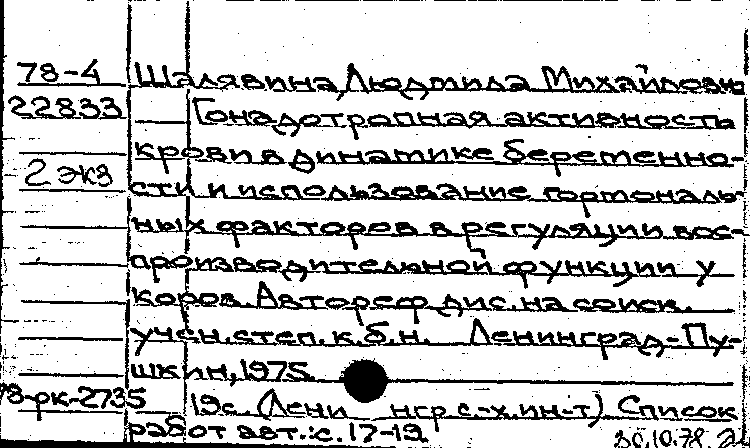 78-4 Шалявина, Людмила Михайловн
22833 Гонадотропная активность
крови в динамике беременно-
2 экз сти и использование гормональ-
ных факторов в регуляции вос-
производительной функции у
коров. Автореф. дис. на соиск.
учен. степ. к.б.н. Ленинград-Пу-
шкин, 1975.
78-рк-2735 19с. (Лени нгр с.-х. ин-т). Список
работ авт.: с. 17-19.
30.10.78.